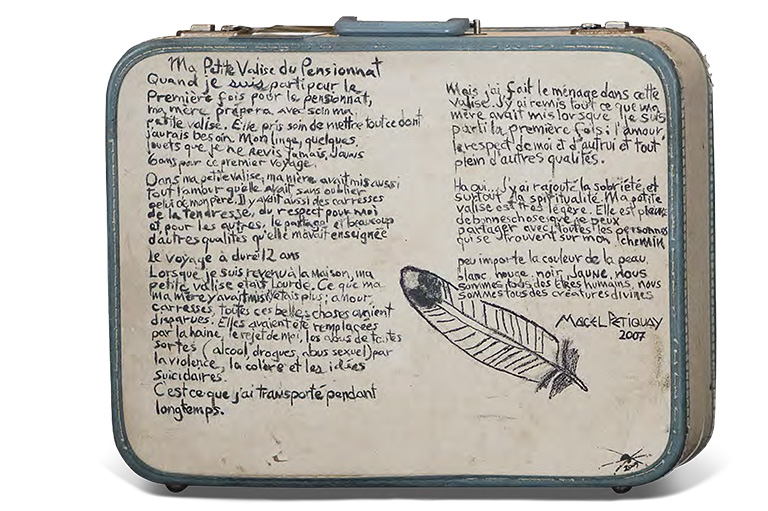 Ma Petite Valise du Pensionnat
Quand je suis parti pour la
Première fois pour le pensionnat,
ma mère prépara avec soin ma
petite valise. Elle pris soin de mettre tout ce dont
j'aurais besoin. Mon linge, quelques
jouets que je ne revis jamais. J'avais
6 ans pour ce premier voyage.
Dans ma petite valise, ma mère avait mis aussi
tout l'amour qu'elle avait sans oublier
celui de mon père. Il y avait aussi des carresses
de la tendresse, du respect pour moi
et pour les autres, le partage et beaucoup
d'autres qualités qu'elle m'avait enseignée
Le voyage à duré 12 ans
Lorsque je suis revenu à la maison, ma
petite valise était Lourde. Ce que ma
ma mère y avait mis n'était plus; amour,
carresses, toutes ces belles choses avaient
disparues. Elles avaient été remplacées
par la haine, le rejet de moi, les abus de toutes
sortes (alcool, drogues, abus sexuel) par
la violence, la colère et les idées
suicidaires.
C'est ce que j'ai transporté pendant
longtemps.
Mais j'ai fait le ménage dans cette
valise. J'y ai remis tout ce que ma
mère avait mis lorsque je suis
parti la première fois: l'amour,
le respect de moi et d'autrui et tout
plein d'autres qualités.
Ha oui... J'y ai rajouté la sobriété et
surtout la spiritualité. Ma petite
valise est très légère. Elle est pleine
de bonnes choses que je peux
partager avec toutes les personnes
qui se trouvent sur mon chemin
peu importe la couleur de la peau.
blanc, rouge, noir, Jaune. Nous
sommes tous des êtres humains, nous
sommes tous des créatures divines
Macel Petiquay
2007
2007